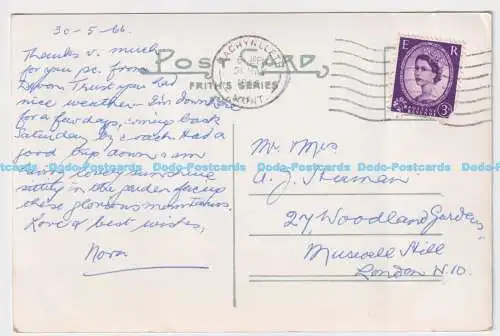 30-5-66.
Thanks v. much
for you pc. from
Devon Trust you had
nice weather. I'm down here
for a few days, coming back
Saturday by coach. Had a
good trip down & am
sitting in the garden facing
these glorious mountains.
Love & best wishes,
Nora
POST CARD
FRITH'S SERIES
MACHYNLLETH
E R
3D
POSTAGE REVENUE
Mr Mrs
A. J.
27 Woodland Gardens,
Muswell Hill
London N.10.
Dodo-Postcards Dodo-Postcards Dodo-Postcards Dodo-Postcards Dodo-Postcards